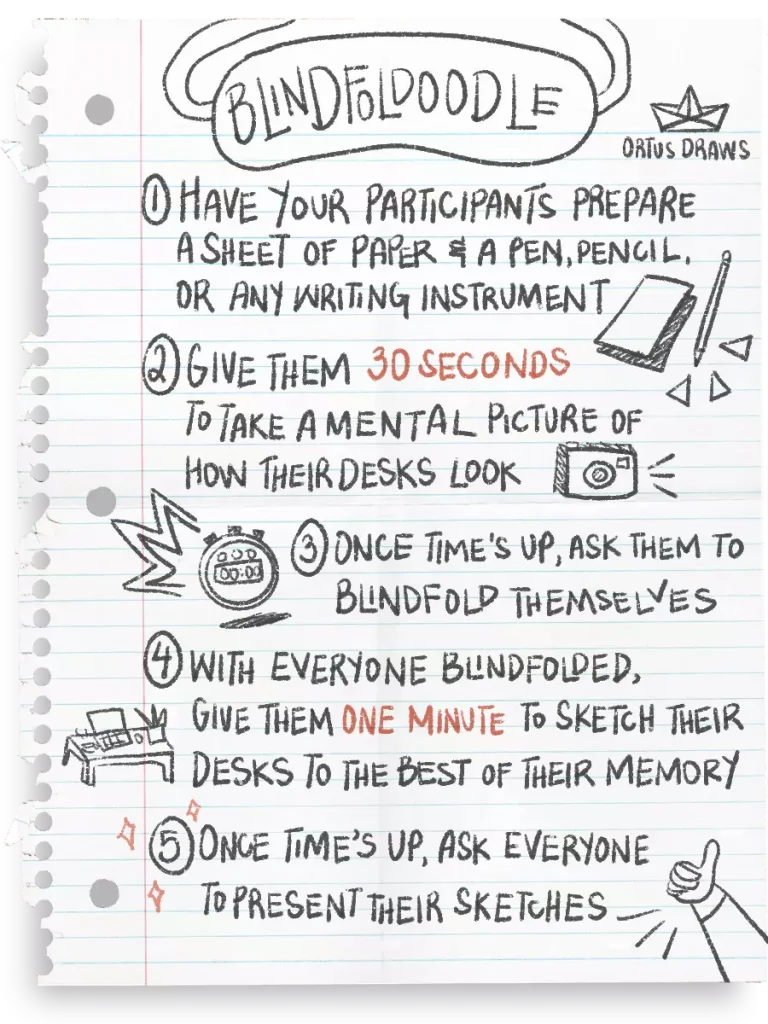 BLINDFOLDOODLE
ORTUS DRAWS
1 HAVE YOUR PARTICIPANTS PREPARE
A SHEET OF PAPER & A PEN, PENCIL,
OR ANY WRITING INSTRUMENT
2 GIVE THEM 30 SECONDS
TO TAKE A MENTAL PICTURE OF
HOW THEIR DESKS LOOK
00:00
3 ONCE TIME'S UP, ASK THEM TO
BLINDFOLD THEMSELVES
4 WITH EVERYONE BLINDFOLDED,
GIVE THEM ONE MINUTE TO SKETCH THEIR
DESKS TO THE BEST OF THEIR MEMORY
5 ONCE TIME'S UP, ASK EVERYONE
TO PRESENT THEIR SKETCHES